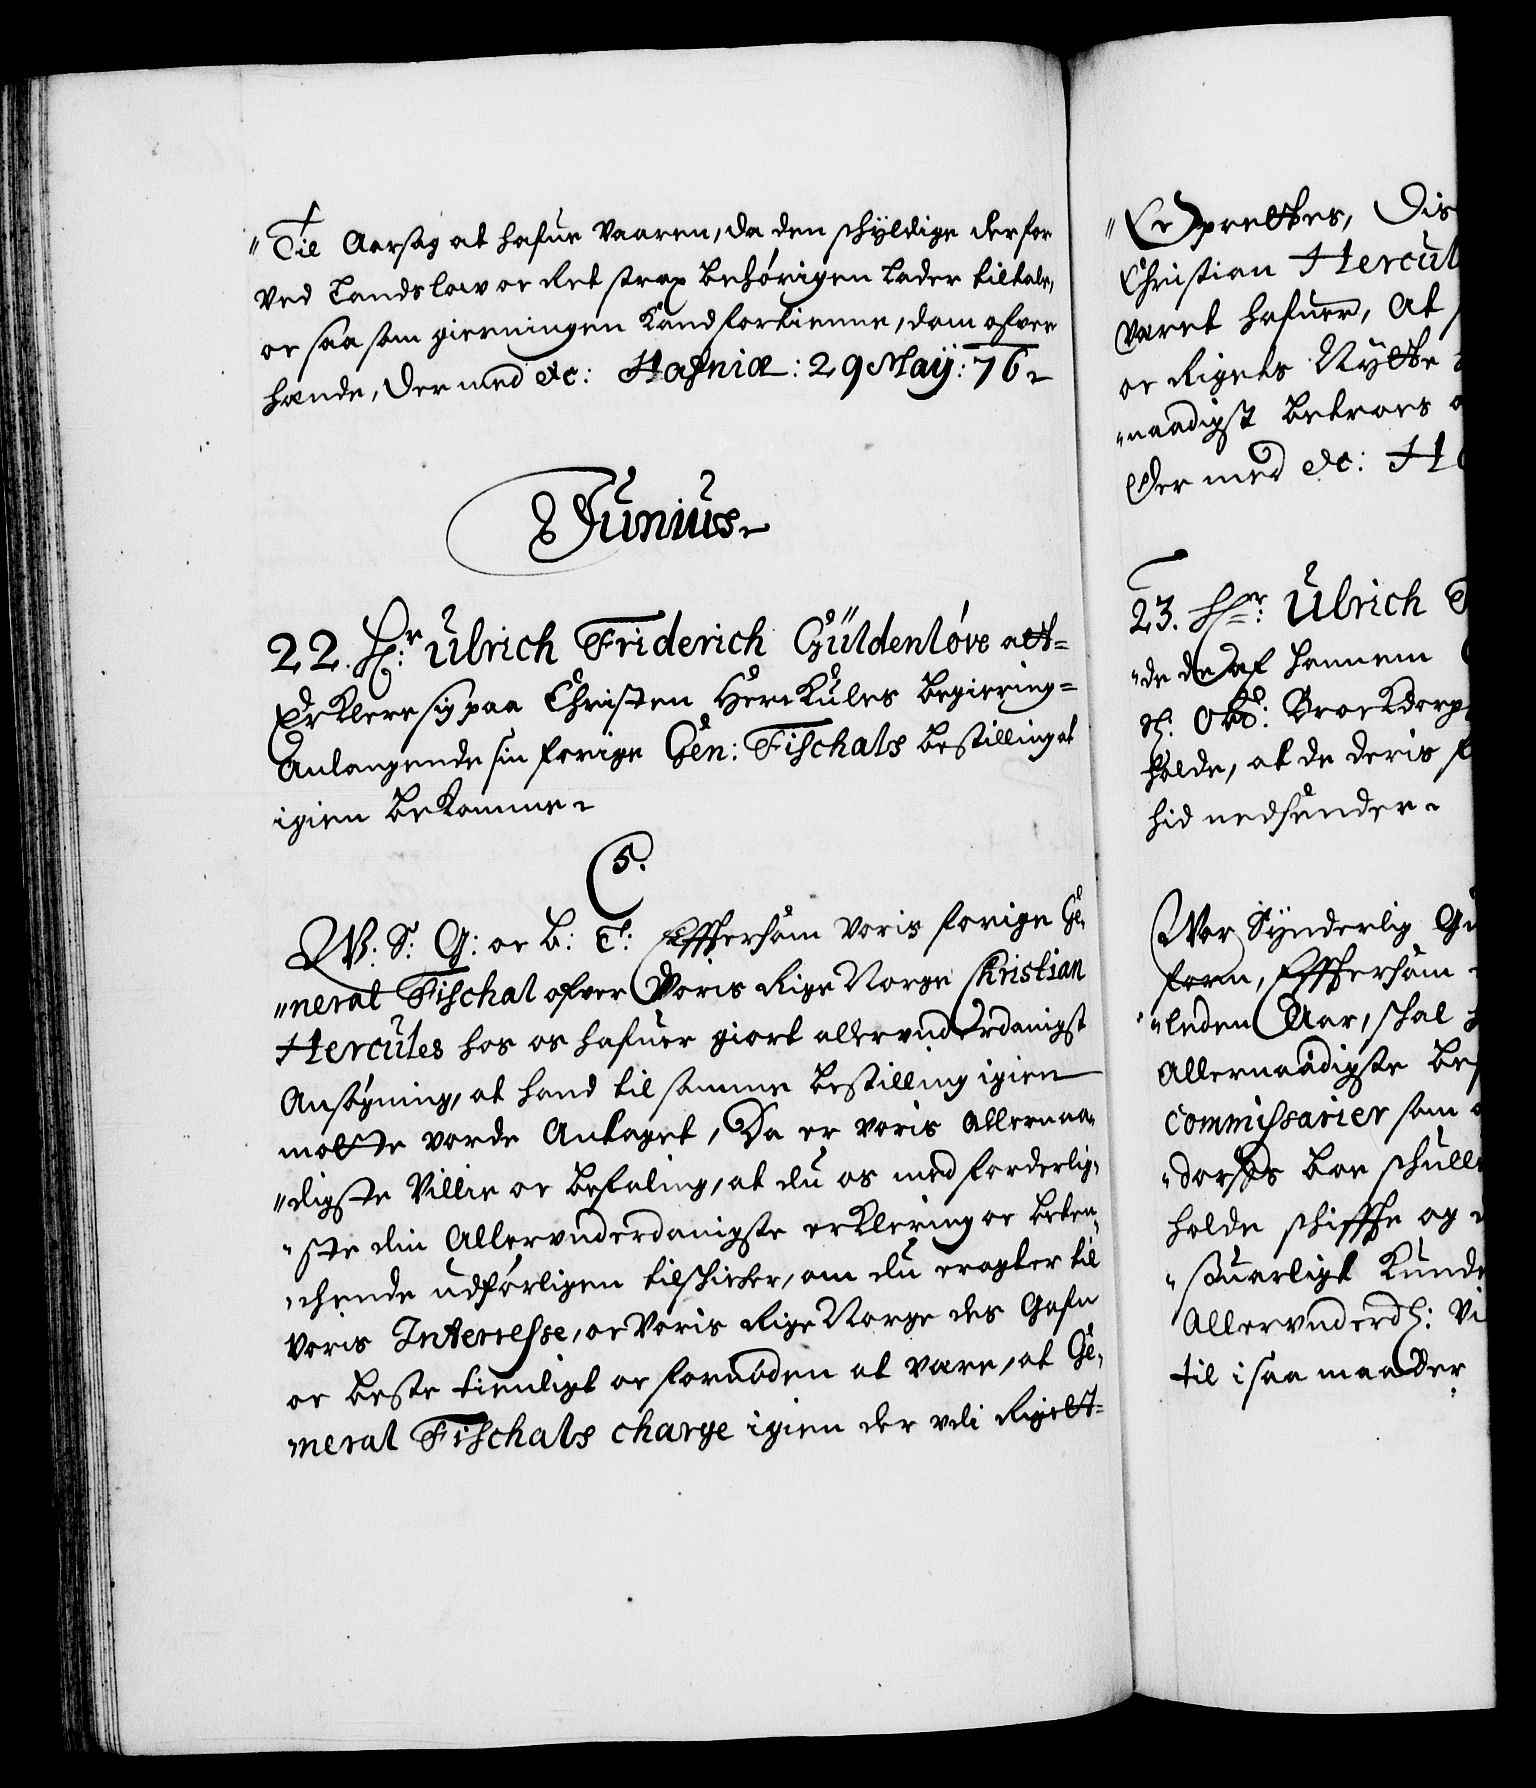 "Til Aarsag at hafue vaaren, da den schÿldige derfor
ved Landslow oc Ret strax behörigen lader tiltale,
oc saa som gierningen kand fortienne, dom ofver
hænde, Der med etc: Hafniæ: 29 Maÿ: 76.
Junius.
22. Hr: Ulrich Friderich Güldenlöve att=
Erklere sig paa Christen Herckules begiering=
Anlangende sin forige Gen: Fischals bestilling at
igien bekomme.
C5.
W: S: G: oc b: T: Effthersom voris forige Ge,
"neral Fischal ofver Voris Rige Norge Christian
Hercules hos os hafuer giort allervnderdanigst
Ansögning, at hand til samme bestilling igien
motte vorde Antaget, Da er voris Allernaa,
"digste Villie oc befaling, at du os med forderlig,
"ste din Allervnderdanigste erklering oc beten,
"chende udförligen tilschicker, om du eragter til
voris Interresse, oc Voris Rige Norge des Gafn
oc beste tienligt oc fornöden at være, at Ge,
"neral Fischals charge igien der vdi Riget=
"Oprettes, Dis
Christian Hercul
været hafuer, At
oc Rigets Nÿtte
"naadigst betroes
Der med etc: H
23. Hr: Ulrich
"de de af hannem
Sl: Broeckdorp
holde, at de deris
hid nedsender.
Vor Sÿnderlig
form, Effthersom
"leden Aar, schal
Allernaadigste bef
Commissarier som
"dorfs boe schulle
holde schiffthe og
"suarligt kunde
Allervnderdl: Vi
til i saa maader